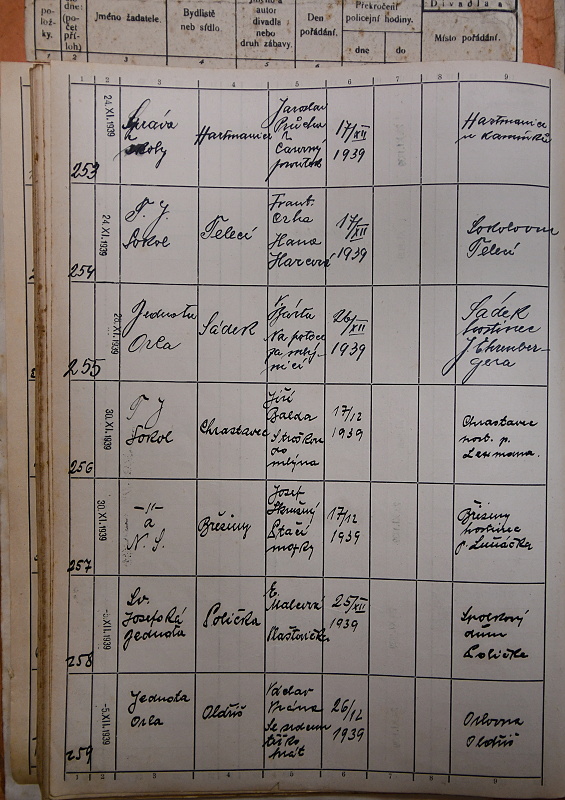 po-
lož-
ky.
dne:
(po-
čet
pří-
loh)
Jméno žadatele.
Bydliště
neb sídlo.
autor
divadla
nebo
druh zábavy.
Den
pořádání.
Překročení
policejní hodiny.
dne
do
Divadla a
Místo pořádání.
1 2 3 4 5 6 7 8 9
253
24.XI.1939
Správa
školy
Hartmanice
Jaroslav
Průcha
Čarovný
proutek
17/XII
1939
Hartmanice
u Kamínků
254
24.XI.1939
T. J.
Sokol
Telecí
Frant.
Crha
Hana
17/XII
1939
Sokolovna
Telecí
255
28.XI.1939
Jednota
Orla
Sádek
V.
Bárta
Na potoce
za mlý-
nicí
26/XII
1939
Sádek
hostinec
J. Ehrenber-
gera
256
30.XI.1939
T J
Sokol
Chrastavec
Jiří
Balda
S troškou
do
mlýna
17/12
1939
Chrastavec
host. p.
257
30.XI.1939
-II-
a
N. S.
Březiny
Josef
Skružný
Ptačí
mozky
17/12
1939
Březiny
hostinec
p.
258
-5.XII.1939
Sv.
Josefská
jednota
Polička
E.
Malevá
Vlaštovička
25/XII
1939
Spolkový
dům
Polička
259
-5.XII.1939
Jednota
Orla
Oldřiš
Václav
Vrána
Se srdcem
těžko
hrát
26/12
1939
Orlovna
Oldřiš
1 2 3 4 5 6 7 8 9